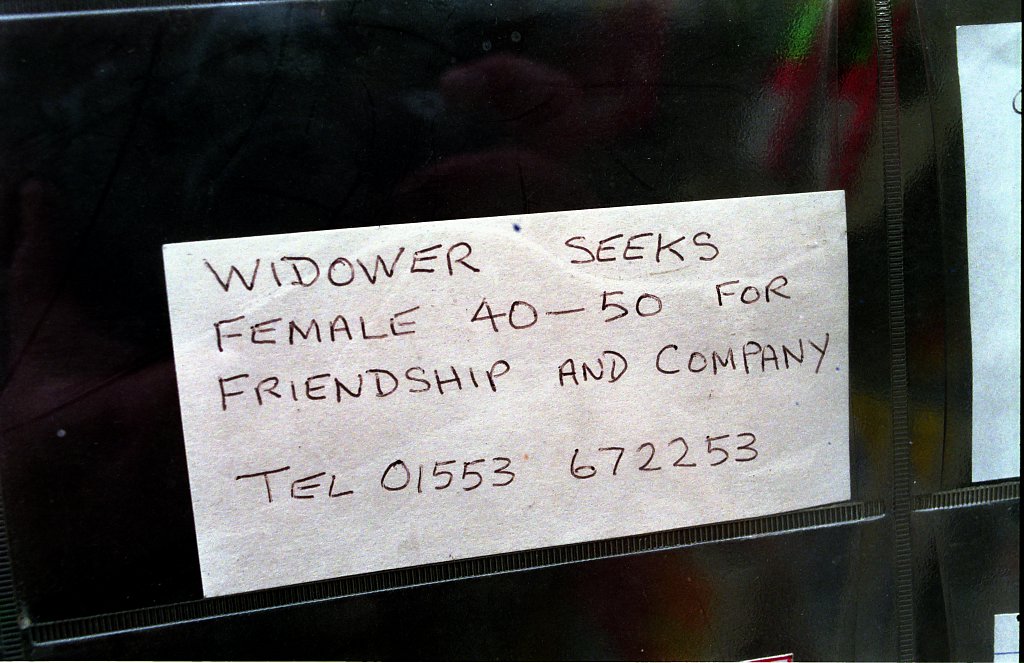 WIDOWER SEEKS
FEMALE 40-50 FOR
FRIENDSHIP AND COMPANY
TEL 01553 672253